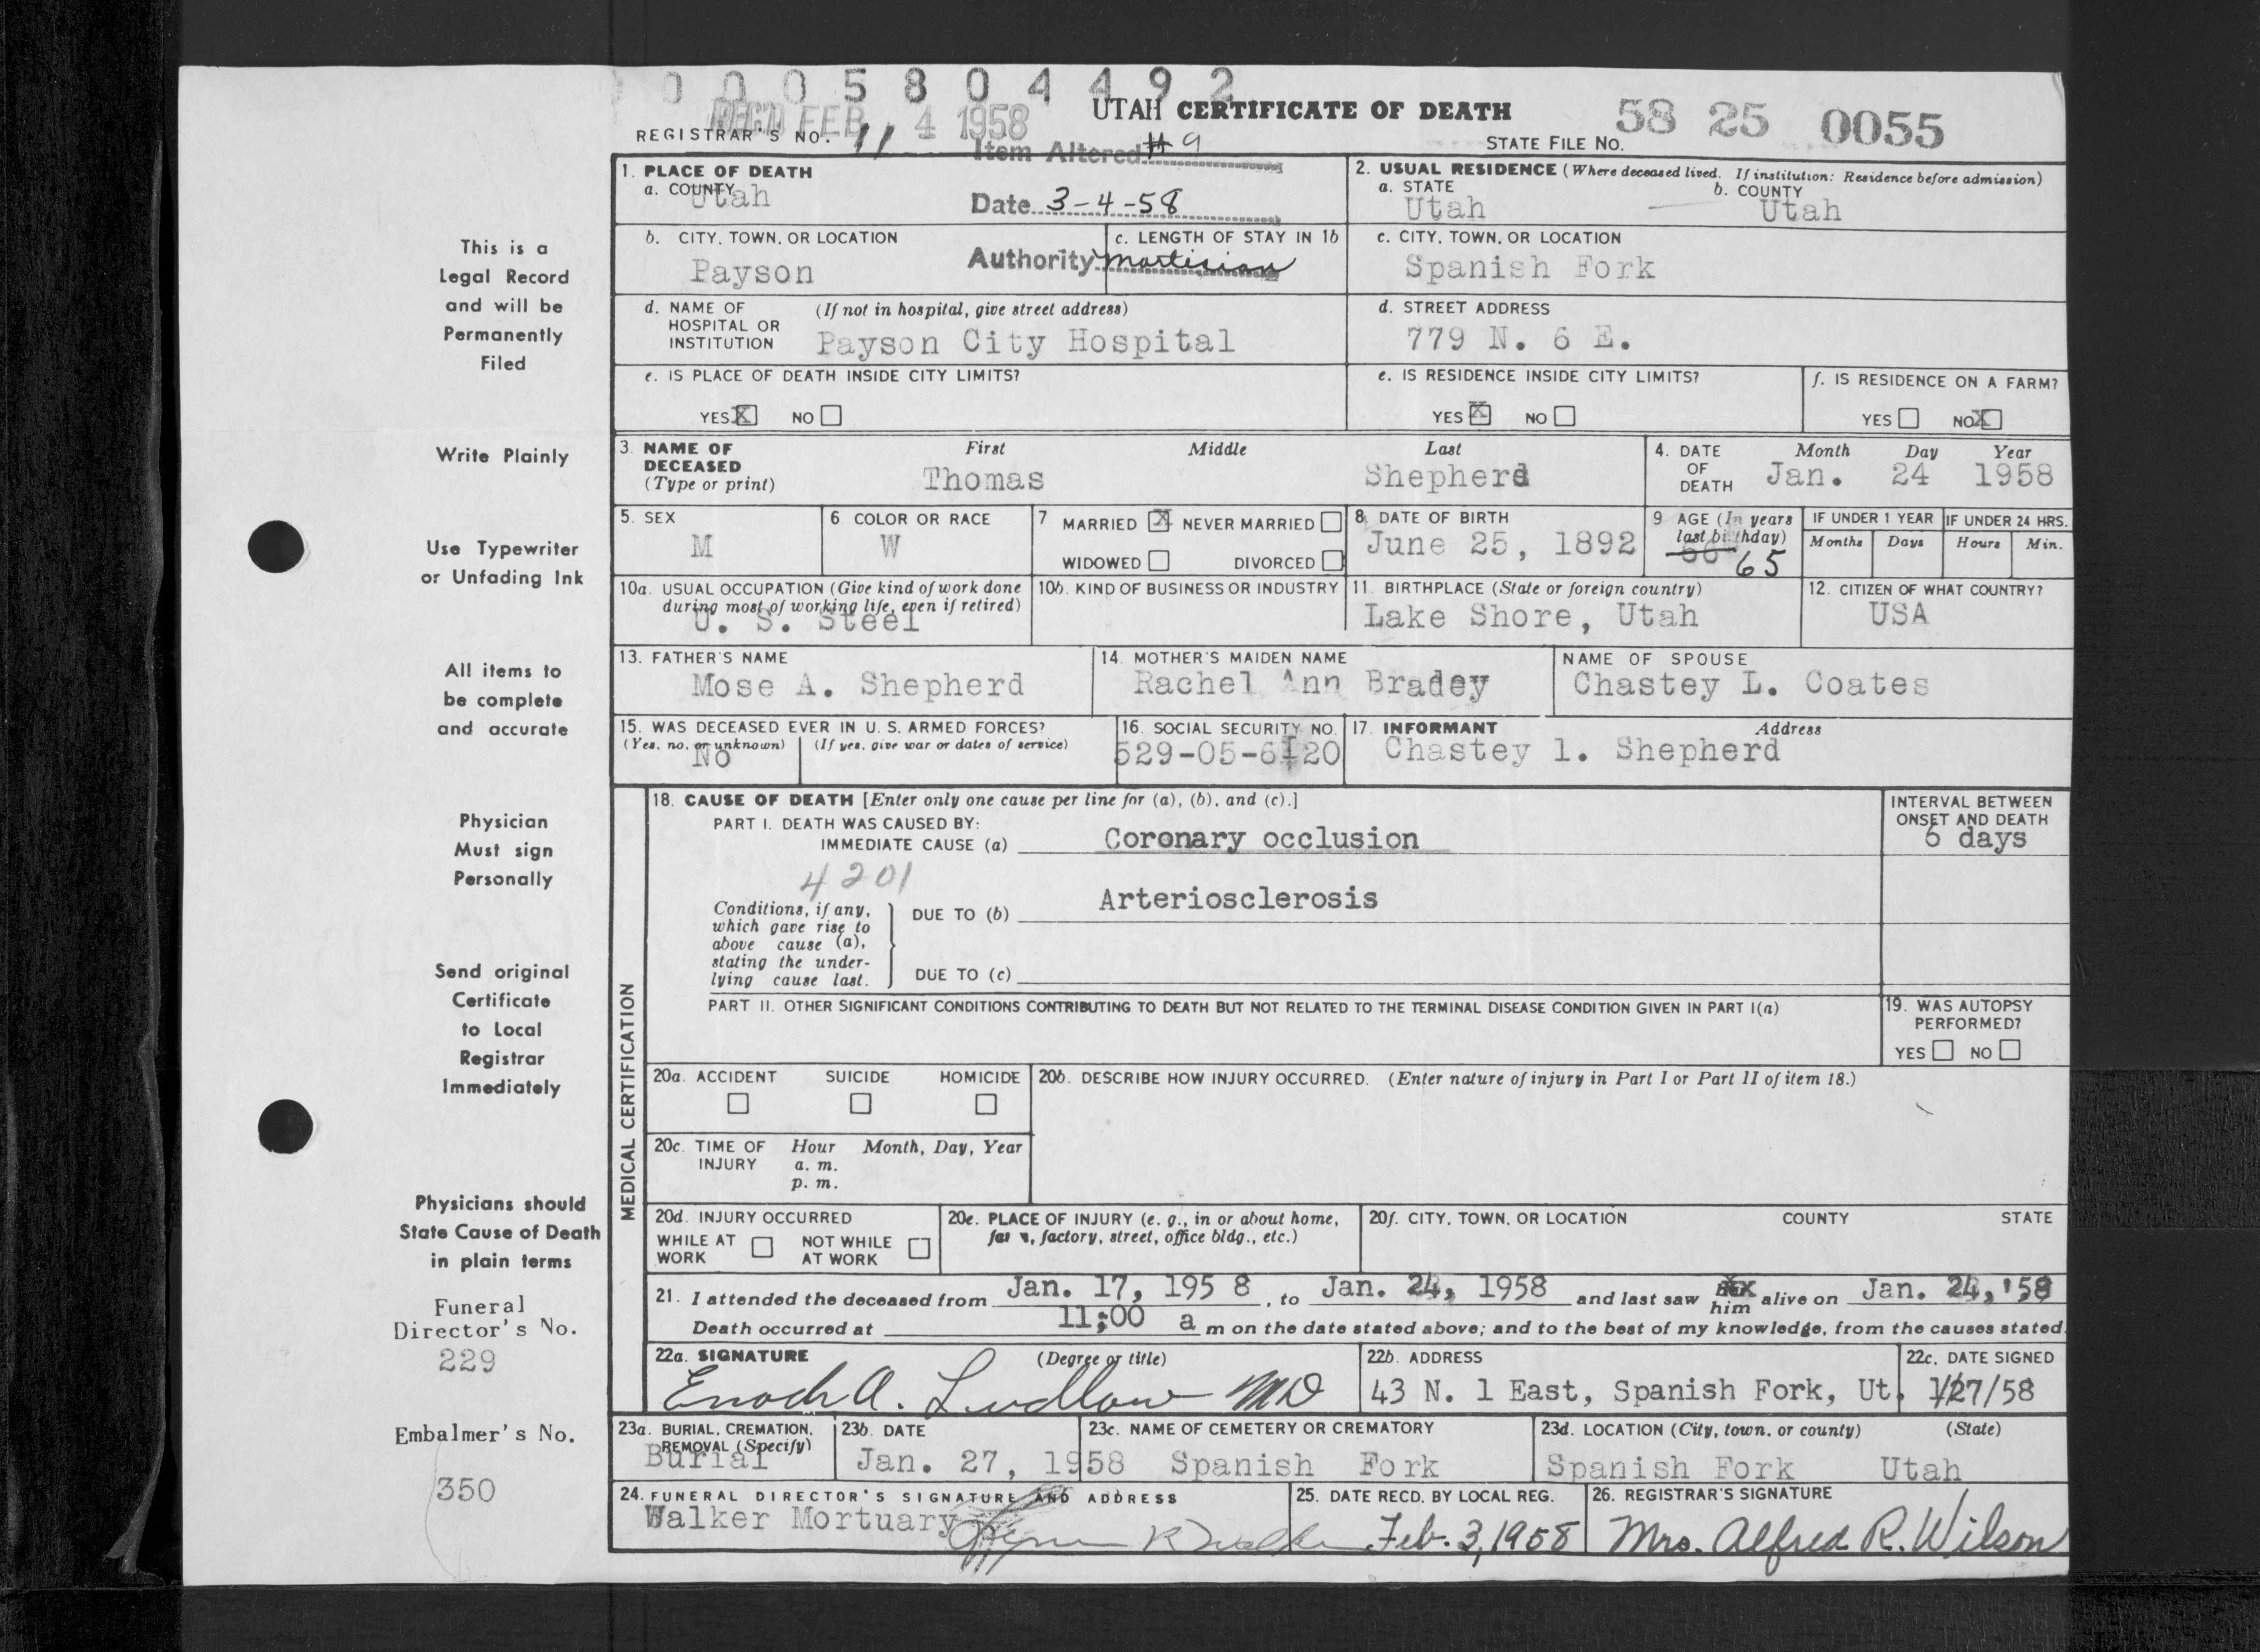 0 0 0 5 8 0 4 4 9 2
REC'D FEB 4 1958 UTAH CERTIFICATE OF DEATH 58 25 0055
REGISTRAR'S NO. 11 STATE FILE NO.
Item Altered #9
1. PLACE OF DEATH
a. COUNTY Utah
Date 3-4-58
2. USUAL RESIDENCE (Where deceased lived. If institution: Residence before admission)
a. STATE Utah b. COUNTY Utah
b. CITY, TOWN, OR LOCATION Payson
Authority Mortician
c. LENGTH OF STAY IN 1b
c. CITY, TOWN, OR LOCATION Spanish Fork
d. NAME OF HOSPITAL OR INSTITUTION (If not in hospital, give street address) Payson City Hospital
d. STREET ADDRESS 779 N. 6 E.
e. IS PLACE OF DEATH INSIDE CITY LIMITS?
YES X NO
e. IS RESIDENCE INSIDE CITY LIMITS?
YES X NO
f. IS RESIDENCE ON A FARM?
YES NO X
3. NAME OF DECEASED (Type or print) First Middle Last
Thomas Shepherd
4. DATE OF DEATH Month Day Year
Jan. 24 1958
5. SEX M
6 COLOR OR RACE W
7 MARRIED X NEVER MARRIED
WIDOWED DIVORCED
8. DATE OF BIRTH June 25, 1892
9 AGE (In years last birthday) 65
IF UNDER 1 YEAR Months Days
IF UNDER 24 HRS. Hours Min.
10a. USUAL OCCUPATION (Give kind of work done during most of working life, even if retired)
U. S. Steel
10b. KIND OF BUSINESS OR INDUSTRY
11. BIRTHPLACE (State or foreign country)
Lake Shore, Utah
12. CITIZEN OF WHAT COUNTRY?
USA
13. FATHER'S NAME
Mose A. Shepherd
14. MOTHER'S MAIDEN NAME
Rachel Ann Bradey
NAME OF SPOUSE
Chastey L. Coates
15. WAS DECEASED EVER IN U. S. ARMED FORCES?
(Yes, no, or unknown) (If yes, give war or dates of service)
No
16. SOCIAL SECURITY NO.
529-05-6120
17. INFORMANT Address
Chastey l. Shepherd
MEDICAL CERTIFICATION
18. CAUSE OF DEATH [Enter only one cause per line for (a), (b), and (c).]
PART I. DEATH WAS CAUSED BY:
IMMEDIATE CAUSE (a) Coronary occlusion
INTERVAL BETWEEN ONSET AND DEATH
6 days
4201
Conditions, if any, which gave rise to above cause (a), stating the underlying cause last.
DUE TO (b) Arteriosclerosis
DUE TO (c)
PART II. OTHER SIGNIFICANT CONDITIONS CONTRIBUTING TO DEATH BUT NOT RELATED TO THE TERMINAL DISEASE CONDITION GIVEN IN PART I(a)
19. WAS AUTOPSY PERFORMED?
YES NO
20a. ACCIDENT SUICIDE HOMICIDE
20b. DESCRIBE HOW INJURY OCCURRED. (Enter nature of injury in Part I or Part II of item 18.)
20c. TIME OF INJURY Hour Month, Day, Year
a. m.
p. m.
20d. INJURY OCCURRED
WHILE AT WORK NOT WHILE AT WORK
20e. PLACE OF INJURY (e. g., in or about home, farm, factory, street, office bldg., etc.)
20f. CITY, TOWN, OR LOCATION COUNTY STATE
21. I attended the deceased from Jan. 17, 195 8, to Jan. 24, 1958 and last saw him alive on Jan. 24, '58
Death occurred at 11:00 a m on the date stated above; and to the best of my knowledge, from the causes stated.
22a. SIGNATURE (Degree or title)
Enoch A. Ludlow MD
22b. ADDRESS
43 N. 1 East, Spanish Fork, Ut.
22c. DATE SIGNED
1/27/58
23a. BURIAL, CREMATION, REMOVAL (Specify)
Burial
23b. DATE
Jan. 27, 1958
23c. NAME OF CEMETERY OR CREMATORY
Spanish Fork
23d. LOCATION (City, town, or county) (State)
Spanish Fork Utah
24. FUNERAL DIRECTOR'S SIGNATURE AND ADDRESS
Walker Mortuary
25. DATE RECD. BY LOCAL REG.
Feb. 3, 1958
26. REGISTRAR'S SIGNATURE
Mrs. Alfred R. Wilson
This is a
Legal Record
and will be
Permanently
Filed
Write Plainly
Use Typewriter
or Unfading Ink
All items to
be complete
and accurate
Physician
Must sign
Personally
Send original
Certificate
to Local
Registrar
Immediately
Physicians should
State Cause of Death
in plain terms
Funeral
Director's No.
229
Embalmer's No.
350